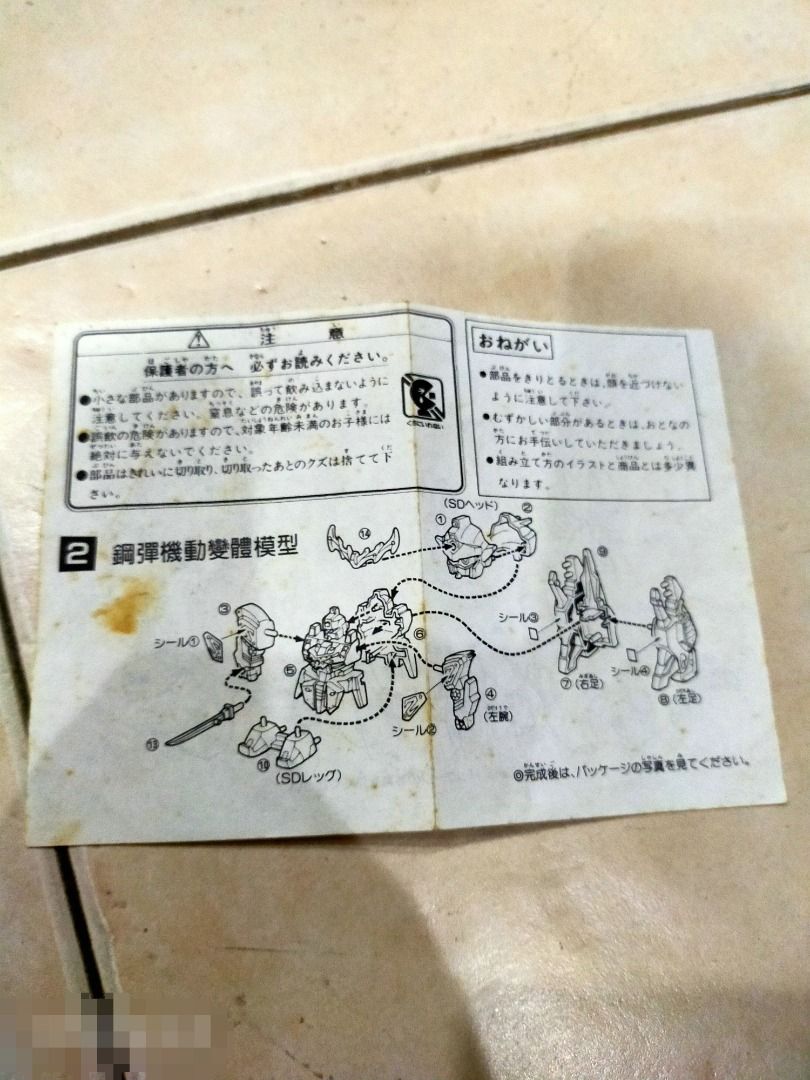 注意
保護者の方へ 必ずお読みください。
●小さな部品がありますので、誤って飲み込まないように
注意してください。窒息などの危険があります。
●誤飲の危険がありますので、対象年齢未満のお子様には
絶対に与えないでください。
●部品はきれいに切り取り、切り取ったあとのクズは捨てて下
さい。
くちにいれない
おねがい
●部品をきりとるときは、顔を近づけない
ように注意して下さい。
●むずかしい部分があるときは、おとなの
方にお手伝いしていただきましょう。
●組み立て方のイラストと商品とは多少異
なります。
2 鋼彈機動變體模型
(SDヘッド)
① ②
⑭
⑨
③
シール①
⑤
⑥
シール③
シール④
⑦(右足)
⑧(左足)
④
(左腕)
シール②
⑬
⑩
(SDレッグ)
◎完成後は、パッケージの写真を見てください。